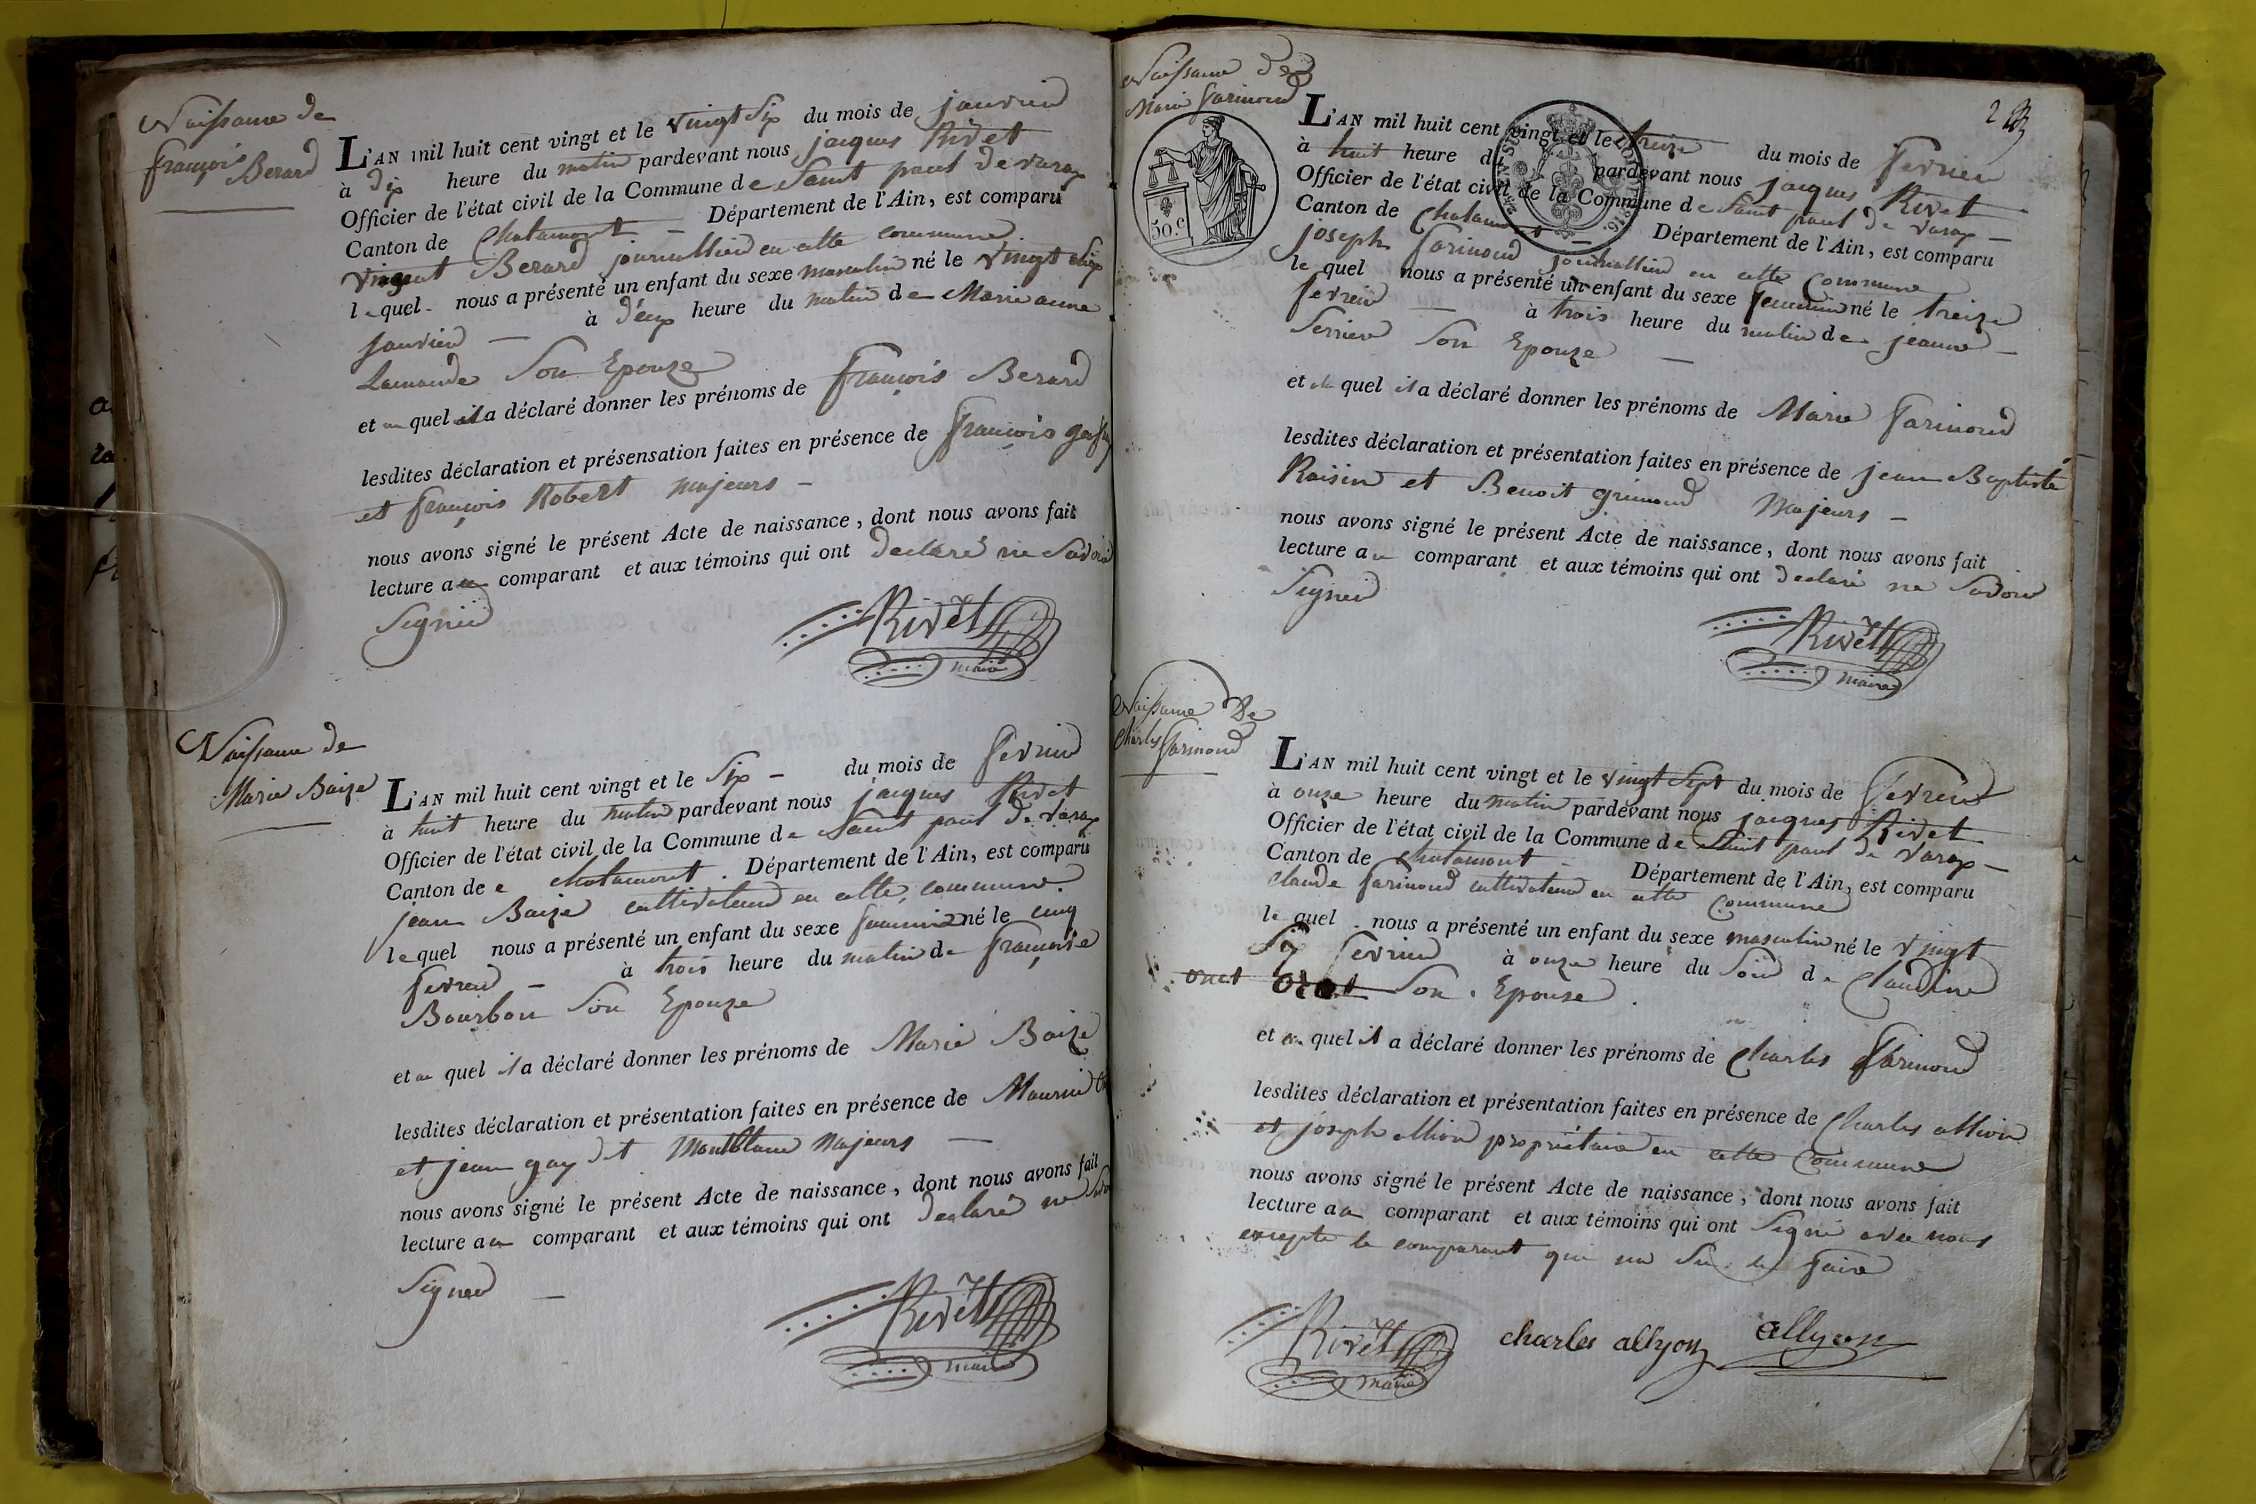 Naissance de
françois
Berard
L'AN mil huit cent vingt et le vingt Six du mois de janvier
à dix heure du matin pardevant nous jacques Rivet
Officier de l'état civil de la Commune de Saint paul de varax
Canton de Chalamont — Département de l'Ain, est comparu
vincent Berard journallier en cette commune
lequel nous a présenté un enfant du sexe masculin né le vingt Six
janvier — à deux heure du matin de Marie anne
Lamande Son Epouze
et au quel il a déclaré donner les prénoms de françois Berard
lesdites déclaration et présensation faites en présence de françois
et françois Robert majeurs —
nous avons signé le présent Acte de naissance, dont nous avons fait
lecture au comparant et aux témoins qui ont declaré ne Savoir
Signer
Rivet
maire
Naissance de
Marie Baize
L'AN mil huit cent vingt et le Six — du mois de fevrier
à huit heure du matin pardevant nous jacques Rivet
Officier de l'état civil de la Commune de Saint paul de varax
Canton de chalamont. Département de l'Ain, est comparu
jean Baize cultivateur en cette commune.
lequel nous a présenté un enfant du sexe feminin né le cinq
fevrier — à trois heure du matin de françoise
Bourbon Son Epouze
et au quel il a déclaré donner les prénoms de Marie Baize
lesdites déclaration et présentation faites en présence de
et jean gay dit Montblanc Majeurs —
nous avons signé le présent Acte de naissance, dont nous avons fait
lecture au comparant et aux témoins qui ont declaré ne
Signer —
Rivet
maire
Naissance de
Marie farimond
30.c
L'AN mil huit cent vingt et le treize du mois de fevrier
à huit heure d pardevant nous jacques Rivet
Officier de l'état civil de la Commune de Saint paul de varax —
Canton de Chalamont — Département de l'Ain, est comparu
joseph farimond journallier en cette Commune
le quel nous a présenté un enfant du sexe feminin né le treize
fevrier — à trois heure du matin de jeanne —
Serrier Son Epouze —
et quel il a déclaré donner les prénoms de Marie farimond
lesdites déclaration et présentation faites en présence de jean Baptiste
Raisin et Benoit grimond Majeurs —
nous avons signé le présent Acte de naissance, dont nous avons fait
lecture au comparant et aux témoins qui ont declaré ne Savoir
Signer
Rivet
maire
Naissance De
Charles farimond
L'AN mil huit cent vingt et le vingt Sept du mois de fevrier
à onze heure du matin pardevant nous jacques Rivet
Officier de l'état civil de la Commune de Saint paul de varax —
Canton de chalamont — Département de l'Ain, est comparu
claude farimond cultivateur en cette Commune
le quel nous a présenté un enfant du sexe masculin né le vingt
Six fevrier à onze heure du Soir de Claudine
Son Epouse
et au quel il a déclaré donner les prénoms de Charles farimond
lesdites déclaration et présentation faites en présence de Charles allion
et joseph allion propriétaire en cette Commune
nous avons signé le présent Acte de naissance, dont nous avons fait
lecture au comparant et aux témoins qui ont Signé avec nous
excepte le comparant qui na Su le faire
Rivet
maire
charles allyon
allyon